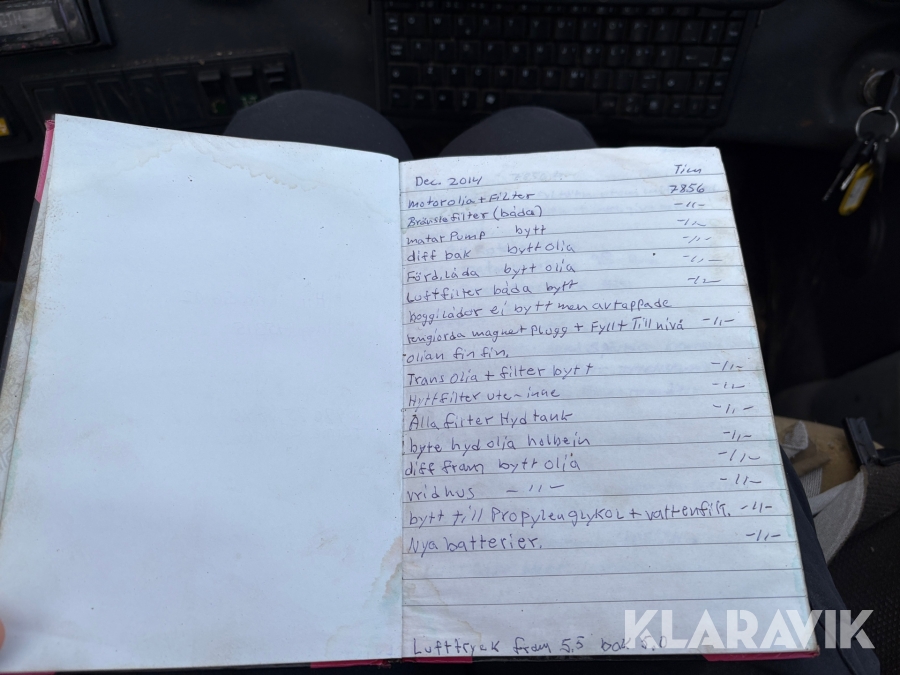 Dec. 2014 Tim
motorolja + Filter 7856
Bränslefilter (båda) -11-
matar Pump bytt -11-
diff bak bytt olja -11-
Förd.låda bytt olja -11-
Luftfilter båda bytt -11-
boggilådor ej bytt men avtappade
rengjorda magnet plugg + Fyllt Till nivå -11-
oljan fin fin.
Trans olja + filter bytt -11-
Hyttfilter ute-inne -11-
Alla filter Hydtank -11-
byte hydolja holbein -11-
diff fram bytt olja -11-
vridhus -11- -11-
bytt till Propylenglykol + vattenfilt. -11-
Nya batterier. -11-
Lufttryck fram 5,5 bak 5,0
KLARAVIK